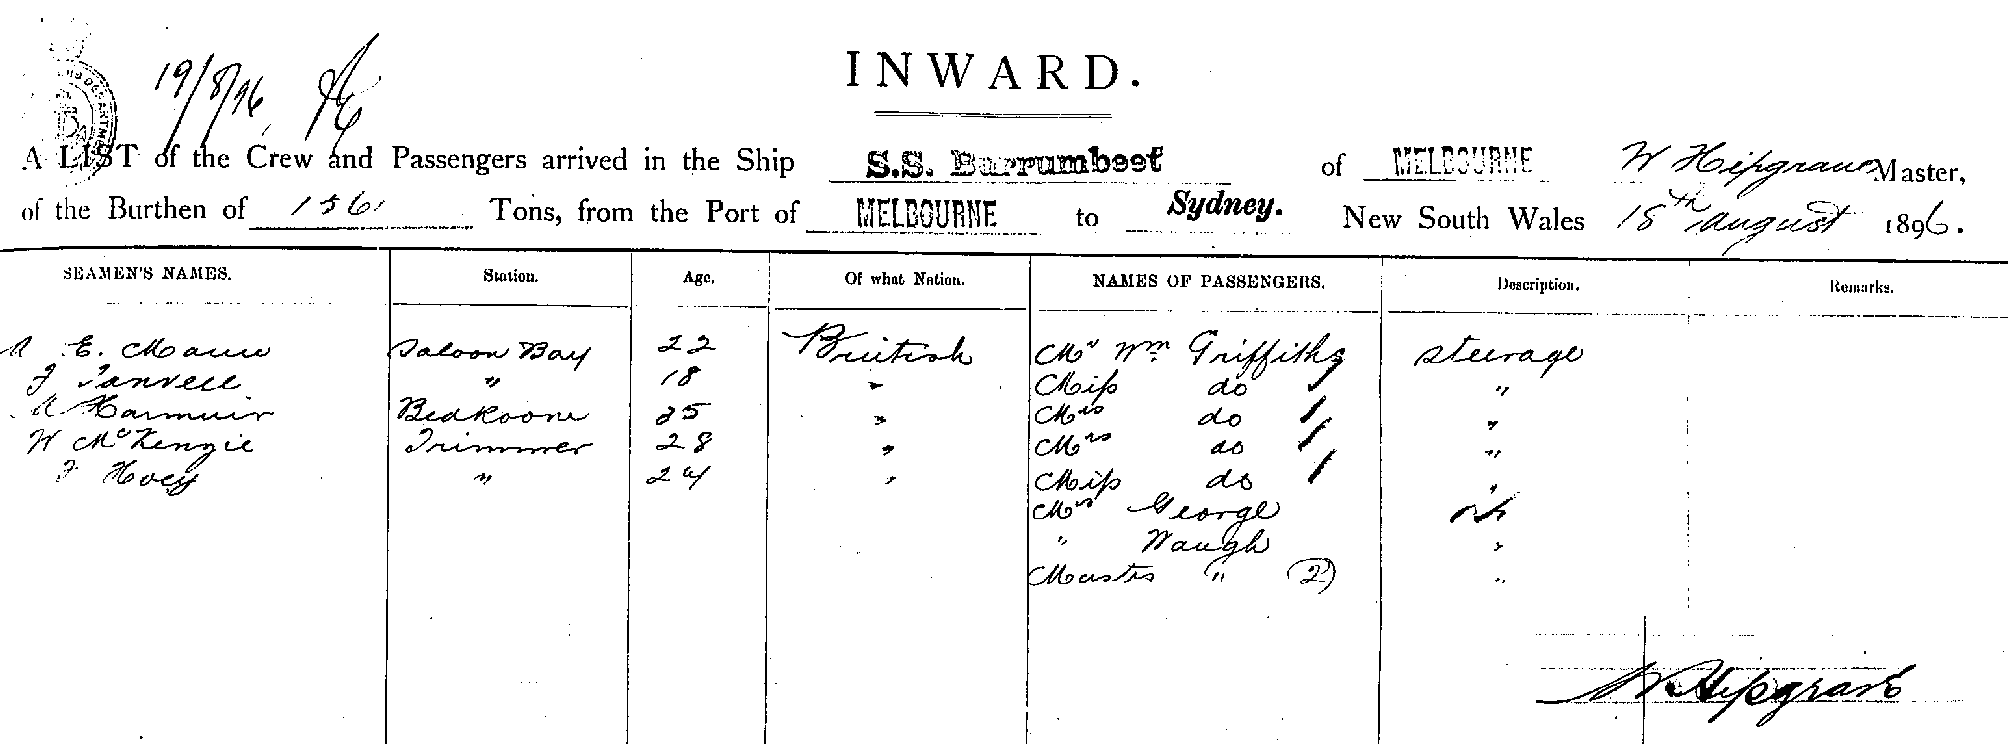 19/8/96
INWARD.
A LIST of the Crew and Passengers arrived in the Ship S.S. Burrumbeet of MELBOURNE W Hipgrave Master,
of the Burthen of Tons, from the Port of MELBOURNE to Sydney. New South Wales 18th august 1896.
SEAMEN'S NAMES. Station. Age. Of what Nation. NAMES OF PASSENGERS. Description. Remarks.
E. Saloon Bay 22 British Mr Wm Griffiths steerage
J " 18 " Miss do "
Bedroom 25 " Mrs do "
W McKenzie Trimmer 28 " Mrs do "
J Hoey " 24 " Miss do "
Mrs George
" Waugh "
Masts " (2) "
W Hipgrave